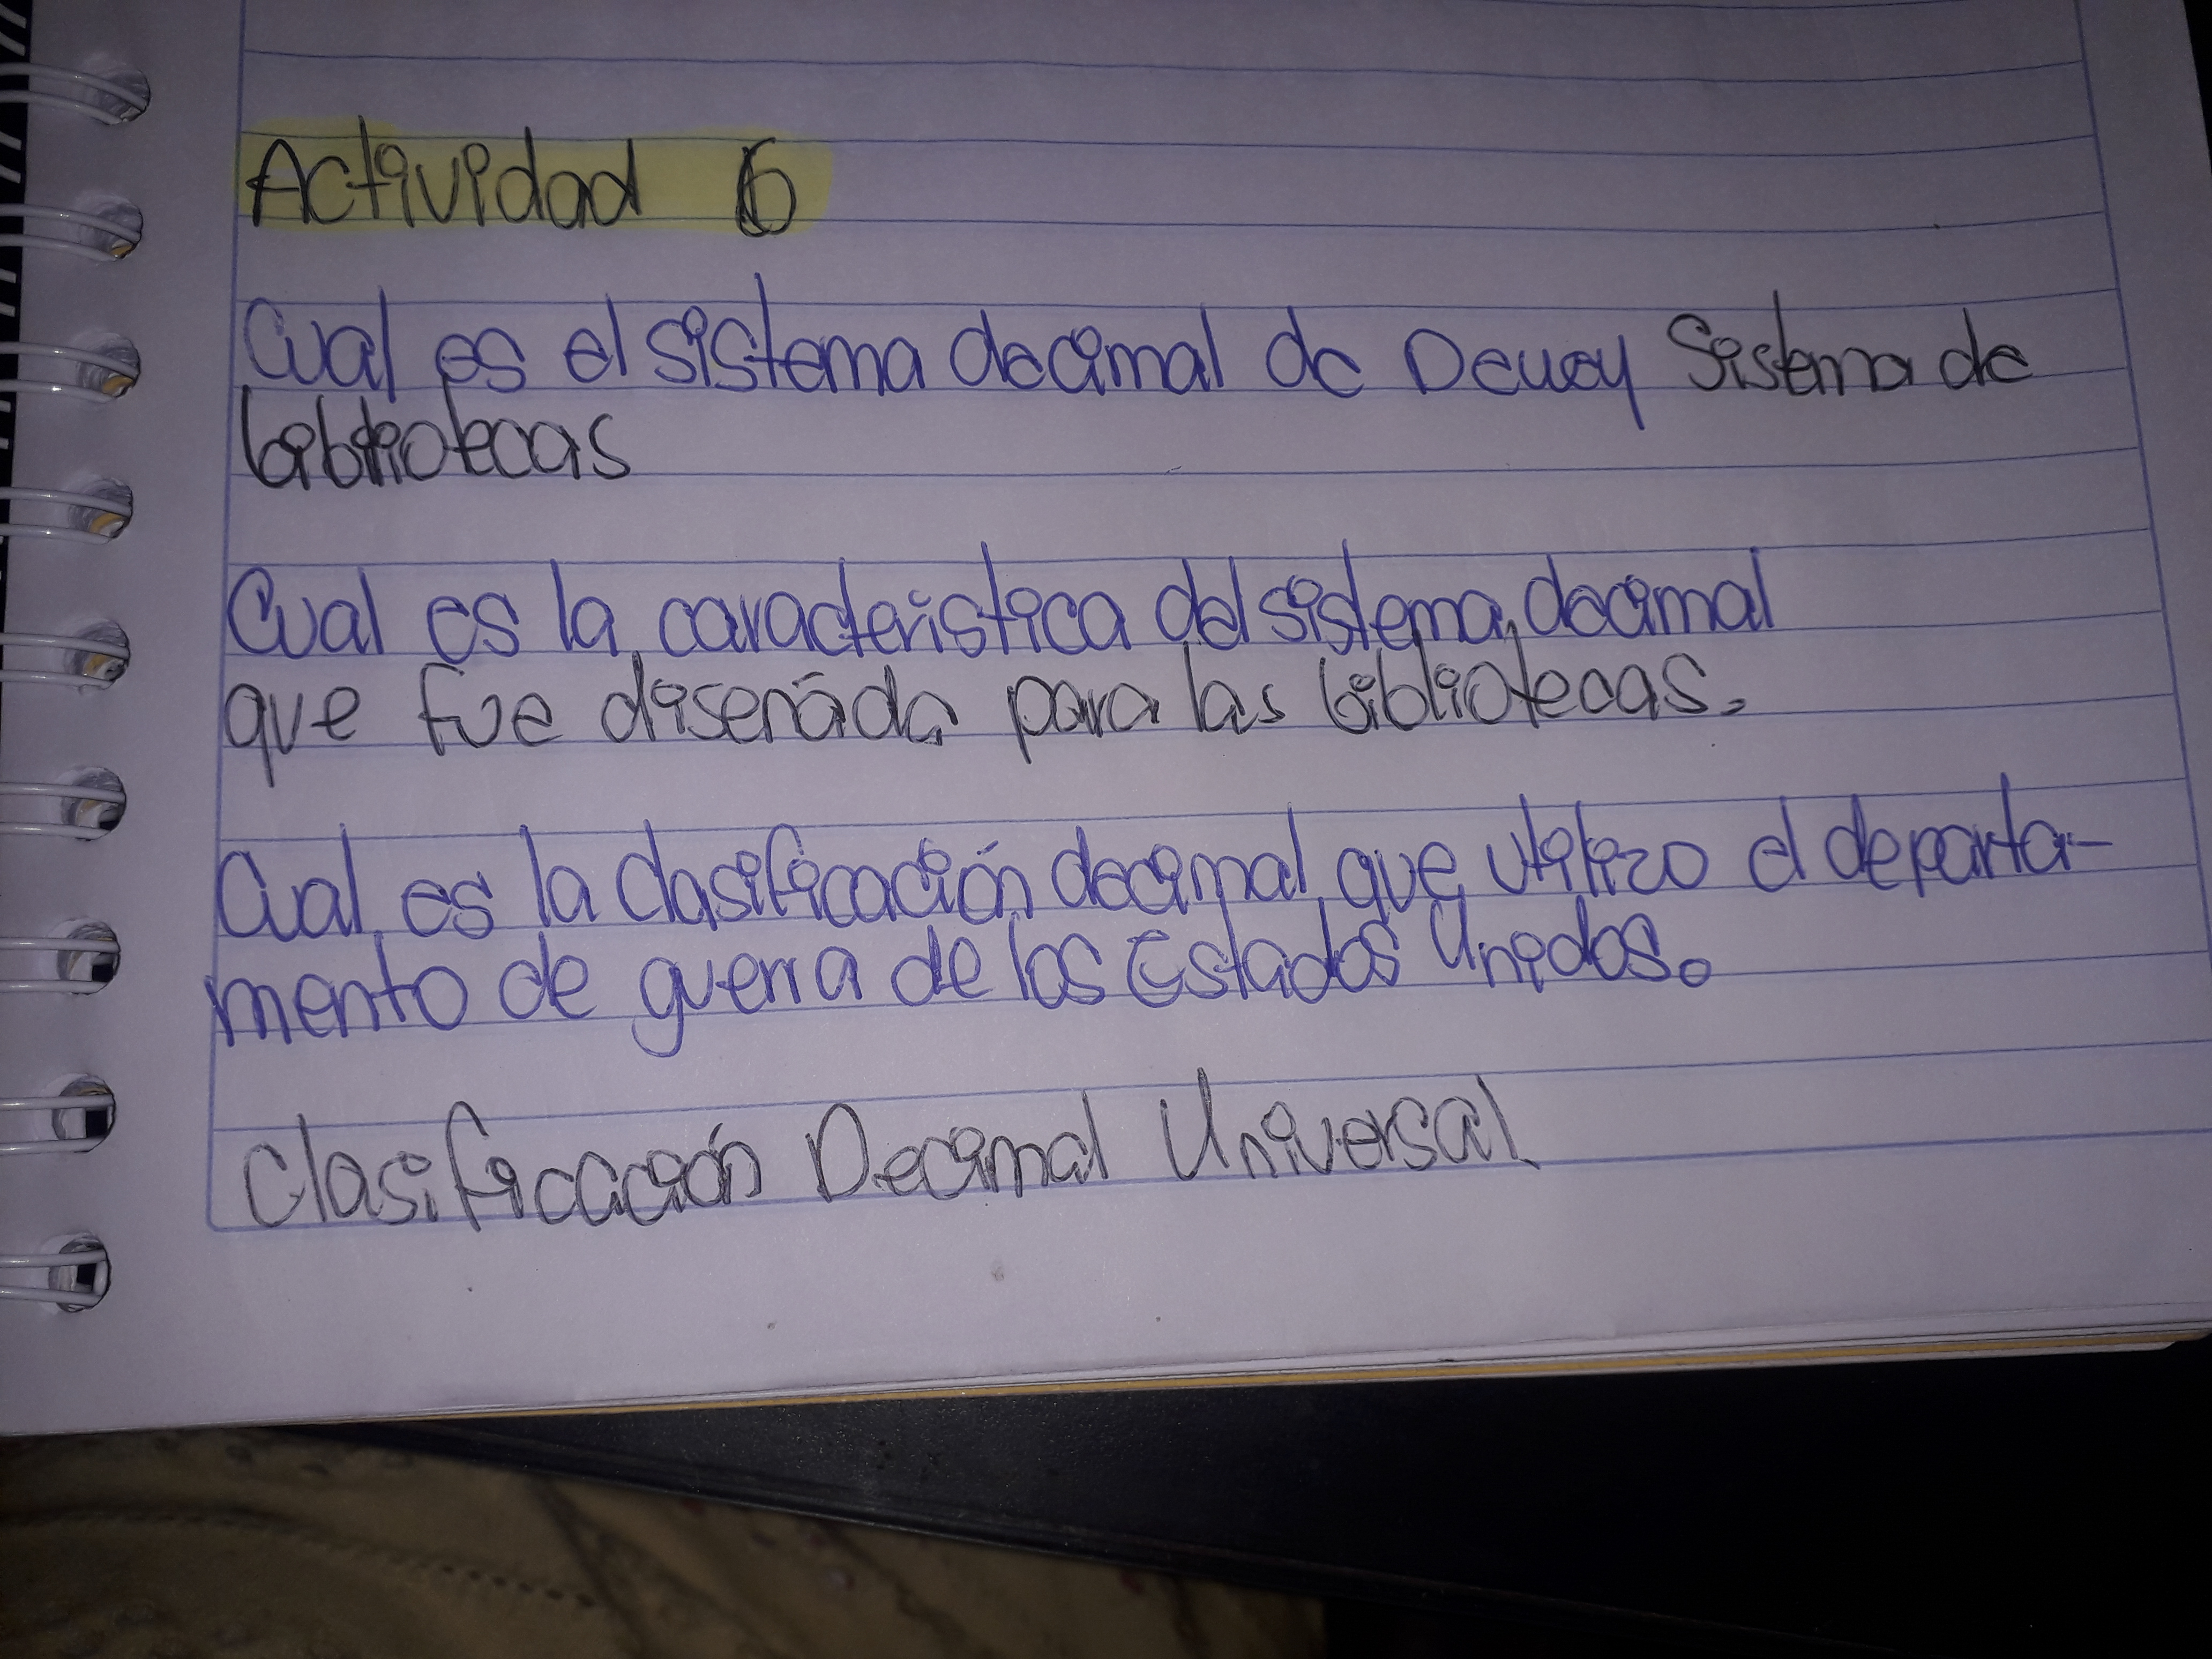 Actividad 6
Cual es el sistema decimal de Dewey Sistema de
bibliotecas
Cual es la caracteristica del sistema decimal
que fue diseñada para las bibliotecas.
Cual es la clasificación decimal que utilizo el departa-
mento de guerra de los Estados Unidos.
Clasificación Decimal Universal